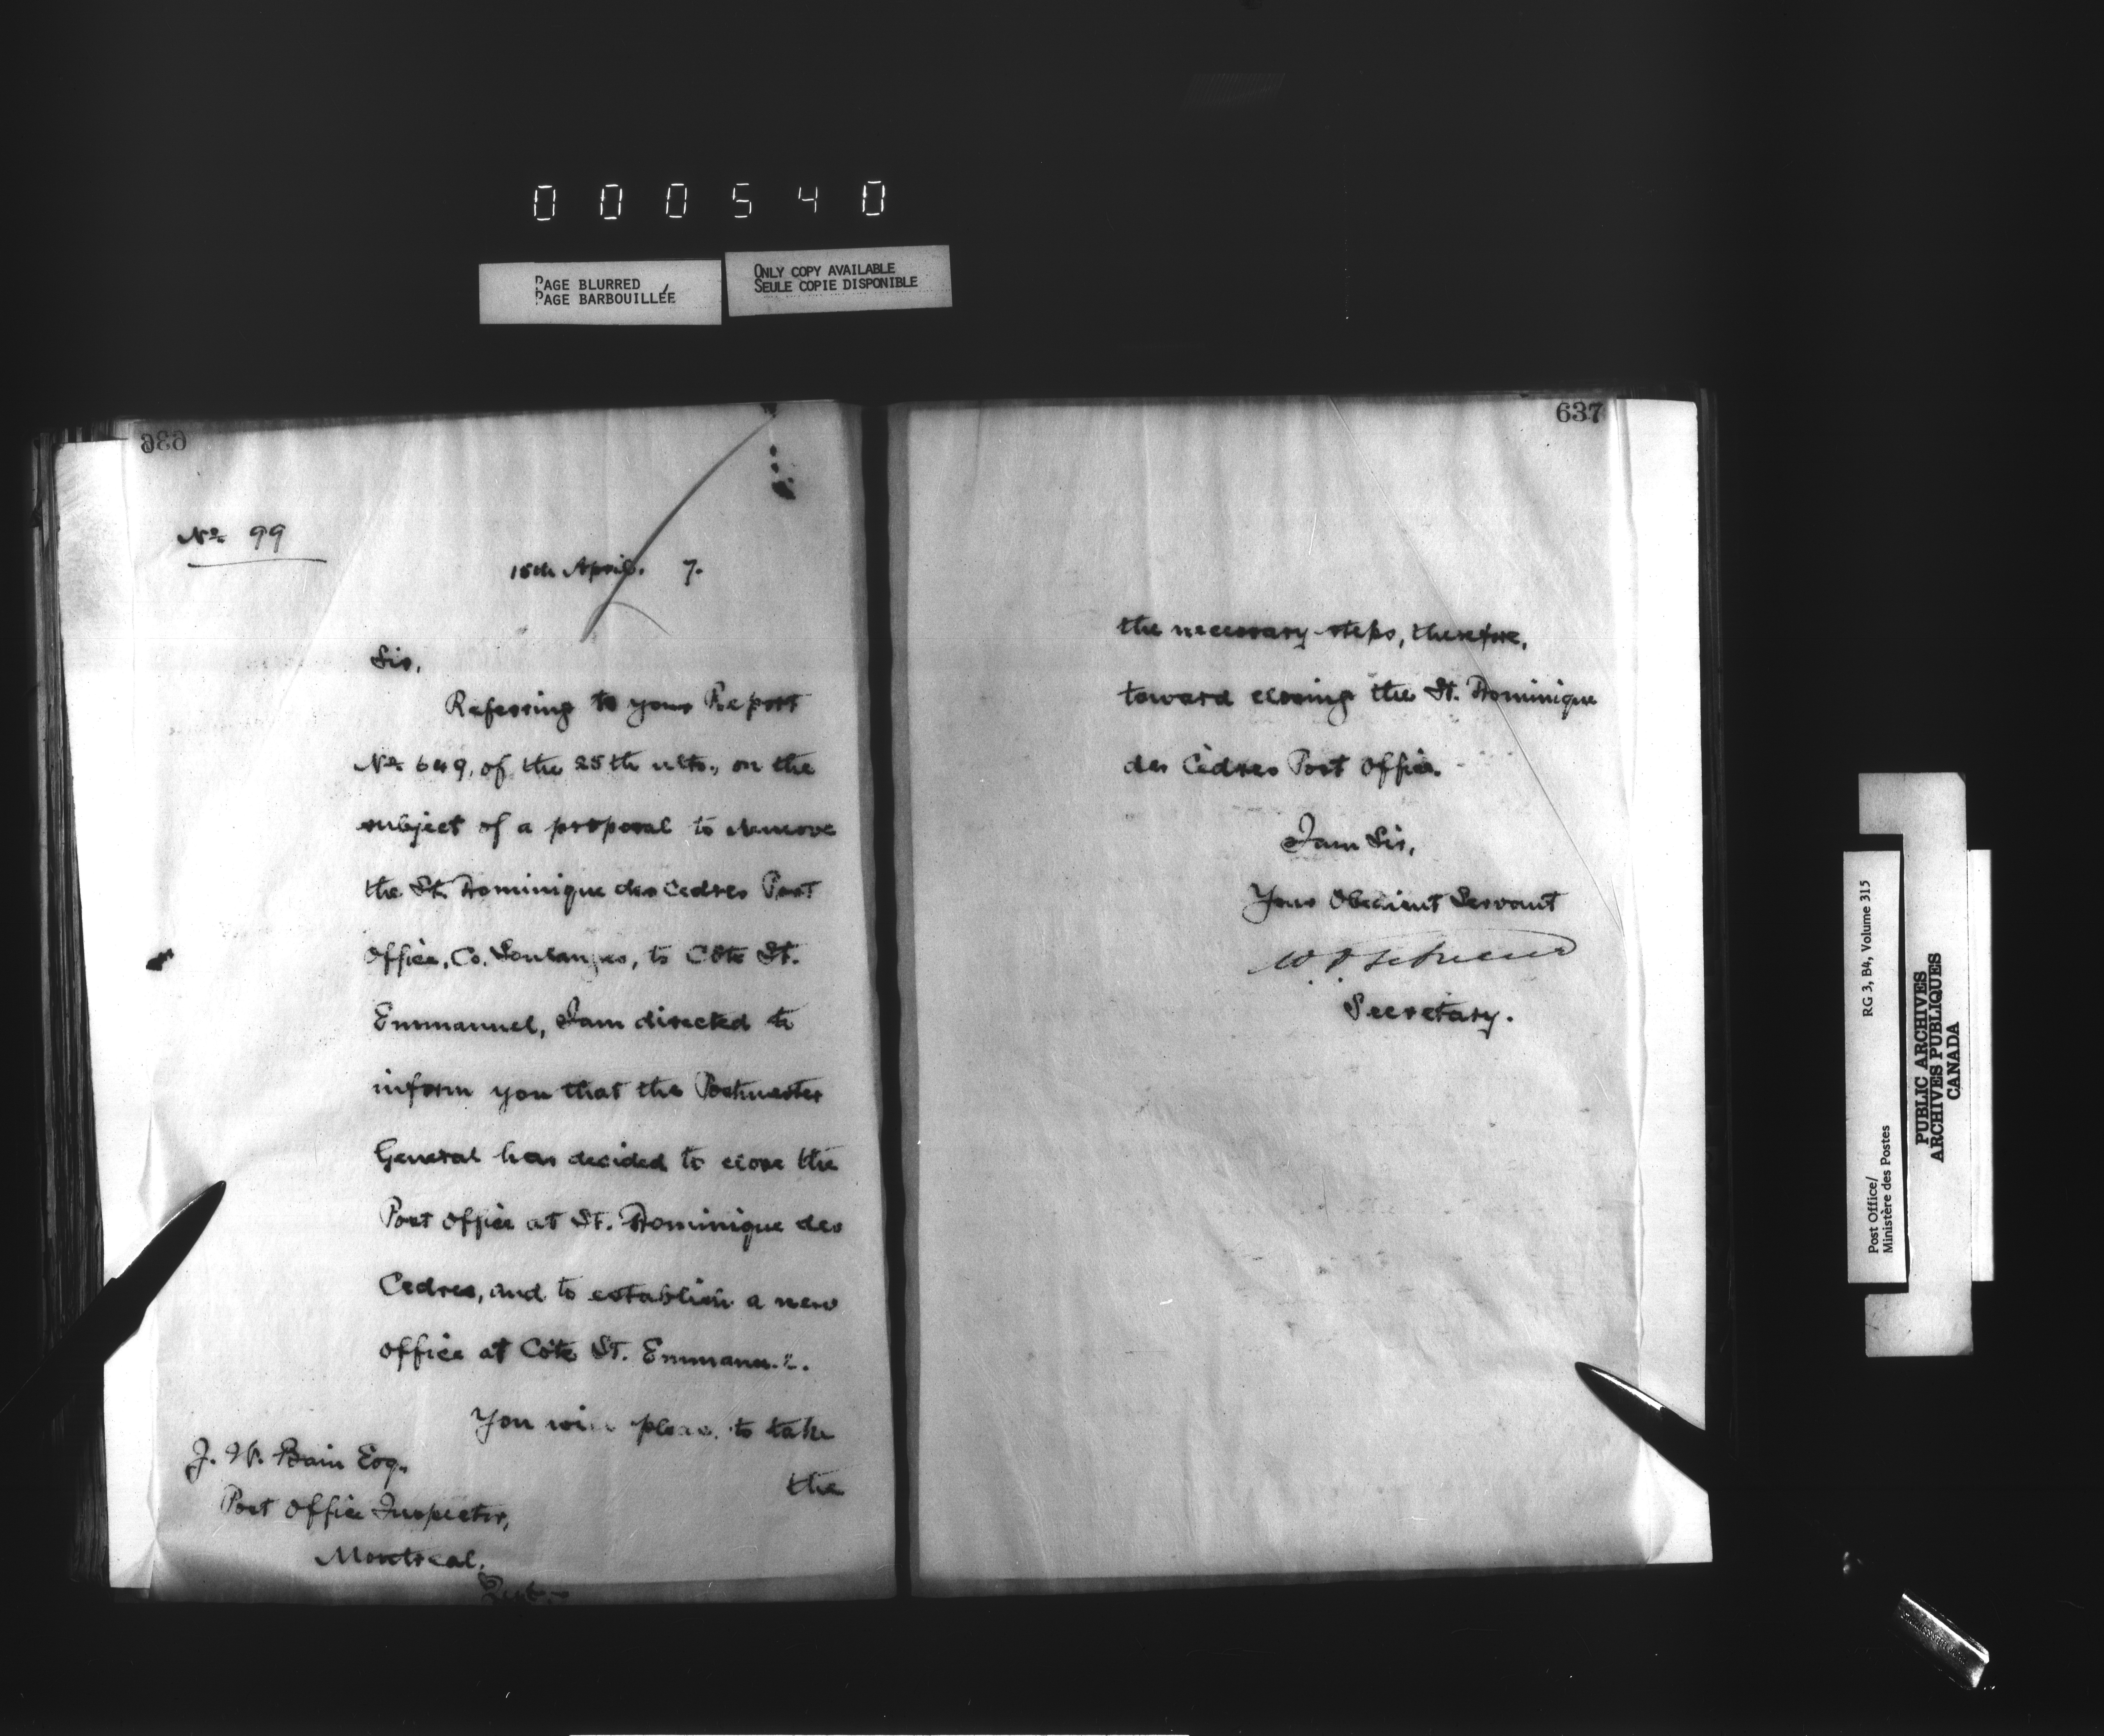 000540
PAGE BLURRED
PAGE BARBOUILLÉE
ONLY COPY AVAILABLE
SEULE COPIE DISPONIBLE
636
No. 99
15th April. 7.
Sir,
Referring to your Report
No. 649, of the 25th ulto., on the
subject of a proposal to remove
the St. Dominique des Cedres Post
Office, Co. Soulanges, to Côte St.
Emmanuel, I am directed to
inform you that the Postmaster
General has decided to close the
Post Office at St. Dominique des
Cedres, and to establish a new
office at Côte St. Emmanuel.
You will please to take
the
J. W. Bain Esq.,
Post Office Inspector,
Montreal,
Que.
637
the necessary steps, therefore,
toward closing the St. Dominique
des Cèdres Post Office.
I am Sir,
Your Obedient Servant
Secretary.
Post Office/
Ministère des Postes
RG 3, B4, Volume 315
PUBLIC ARCHIVES
ARCHIVES PUBLIQUES
CANADA